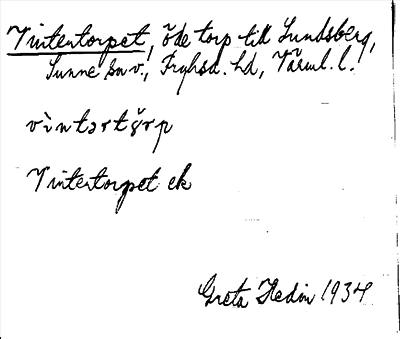 Vintertorpet, öde torp till Lundsberg,
Sunne sn v., Fryksd. hd, Värml. l.
vìntərtǫ̈rp
Vintertorpet ek
Greta Hedin 1934